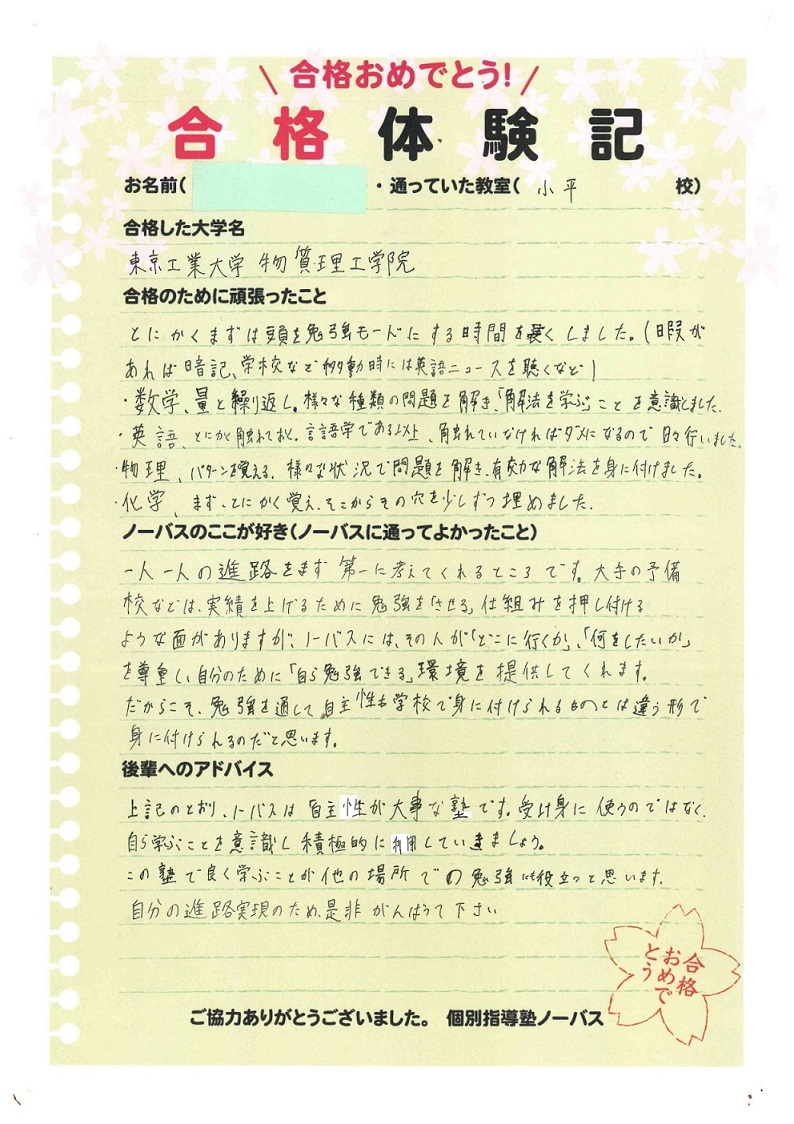 合格おめでとう!
合格体験記
お名前( ・通っていた教室( 小平 校)
合格した大学名
東京工業大学 物質理工学院
合格のために頑張ったこと
とにかくまずは頭を勉強モードにする時間を長くしました。(暇が
あれば暗記、学校など移動時には英語ニュースを聴くなど)
・数学、量と繰り返し。様々な種類の問題を解き、「解法を学ぶ」ことを意識しました。
・英語、とにかく触れておく。言語学である以上、触れていなければダメになるので日々行いました。
・物理、パターンを覚える。様々な状況で問題を解き、有効な解法を身に付けました。
・化学、まず、とにかく覚え、そこからその穴を少しずつ埋めました。
ノーバスのここが好き(ノーバスに通ってよかったこと)
一人一人の進路をまず第一に考えてくれるところです。大手の予備
校などは、実績を上げるために勉強を「させる」仕組みを押し付ける
ような面がありますが、ノーバスには、その人が「どこに行くか」、「何をしたいか」
を尊重し、自分のために「自ら勉強できる」環境を提供してくれます。
だからこそ、勉強を通して自主性も学校で身に付けられるものとは違う形で
身に付けられるのだと思います。
後輩へのアドバイス
上記のとおり、ノーバスは自主性が大事な塾です。受け身に使うのではなく、
自ら学ぶことを意識し積極的に利用していきましょう。
この塾で良く学ぶことが他の場所での勉強にも役立つと思います。
自分の進路実現のため、是非がんばって下さい
合格
おめで
とう
ご協力ありがとうございました。 個別指導塾ノーバス